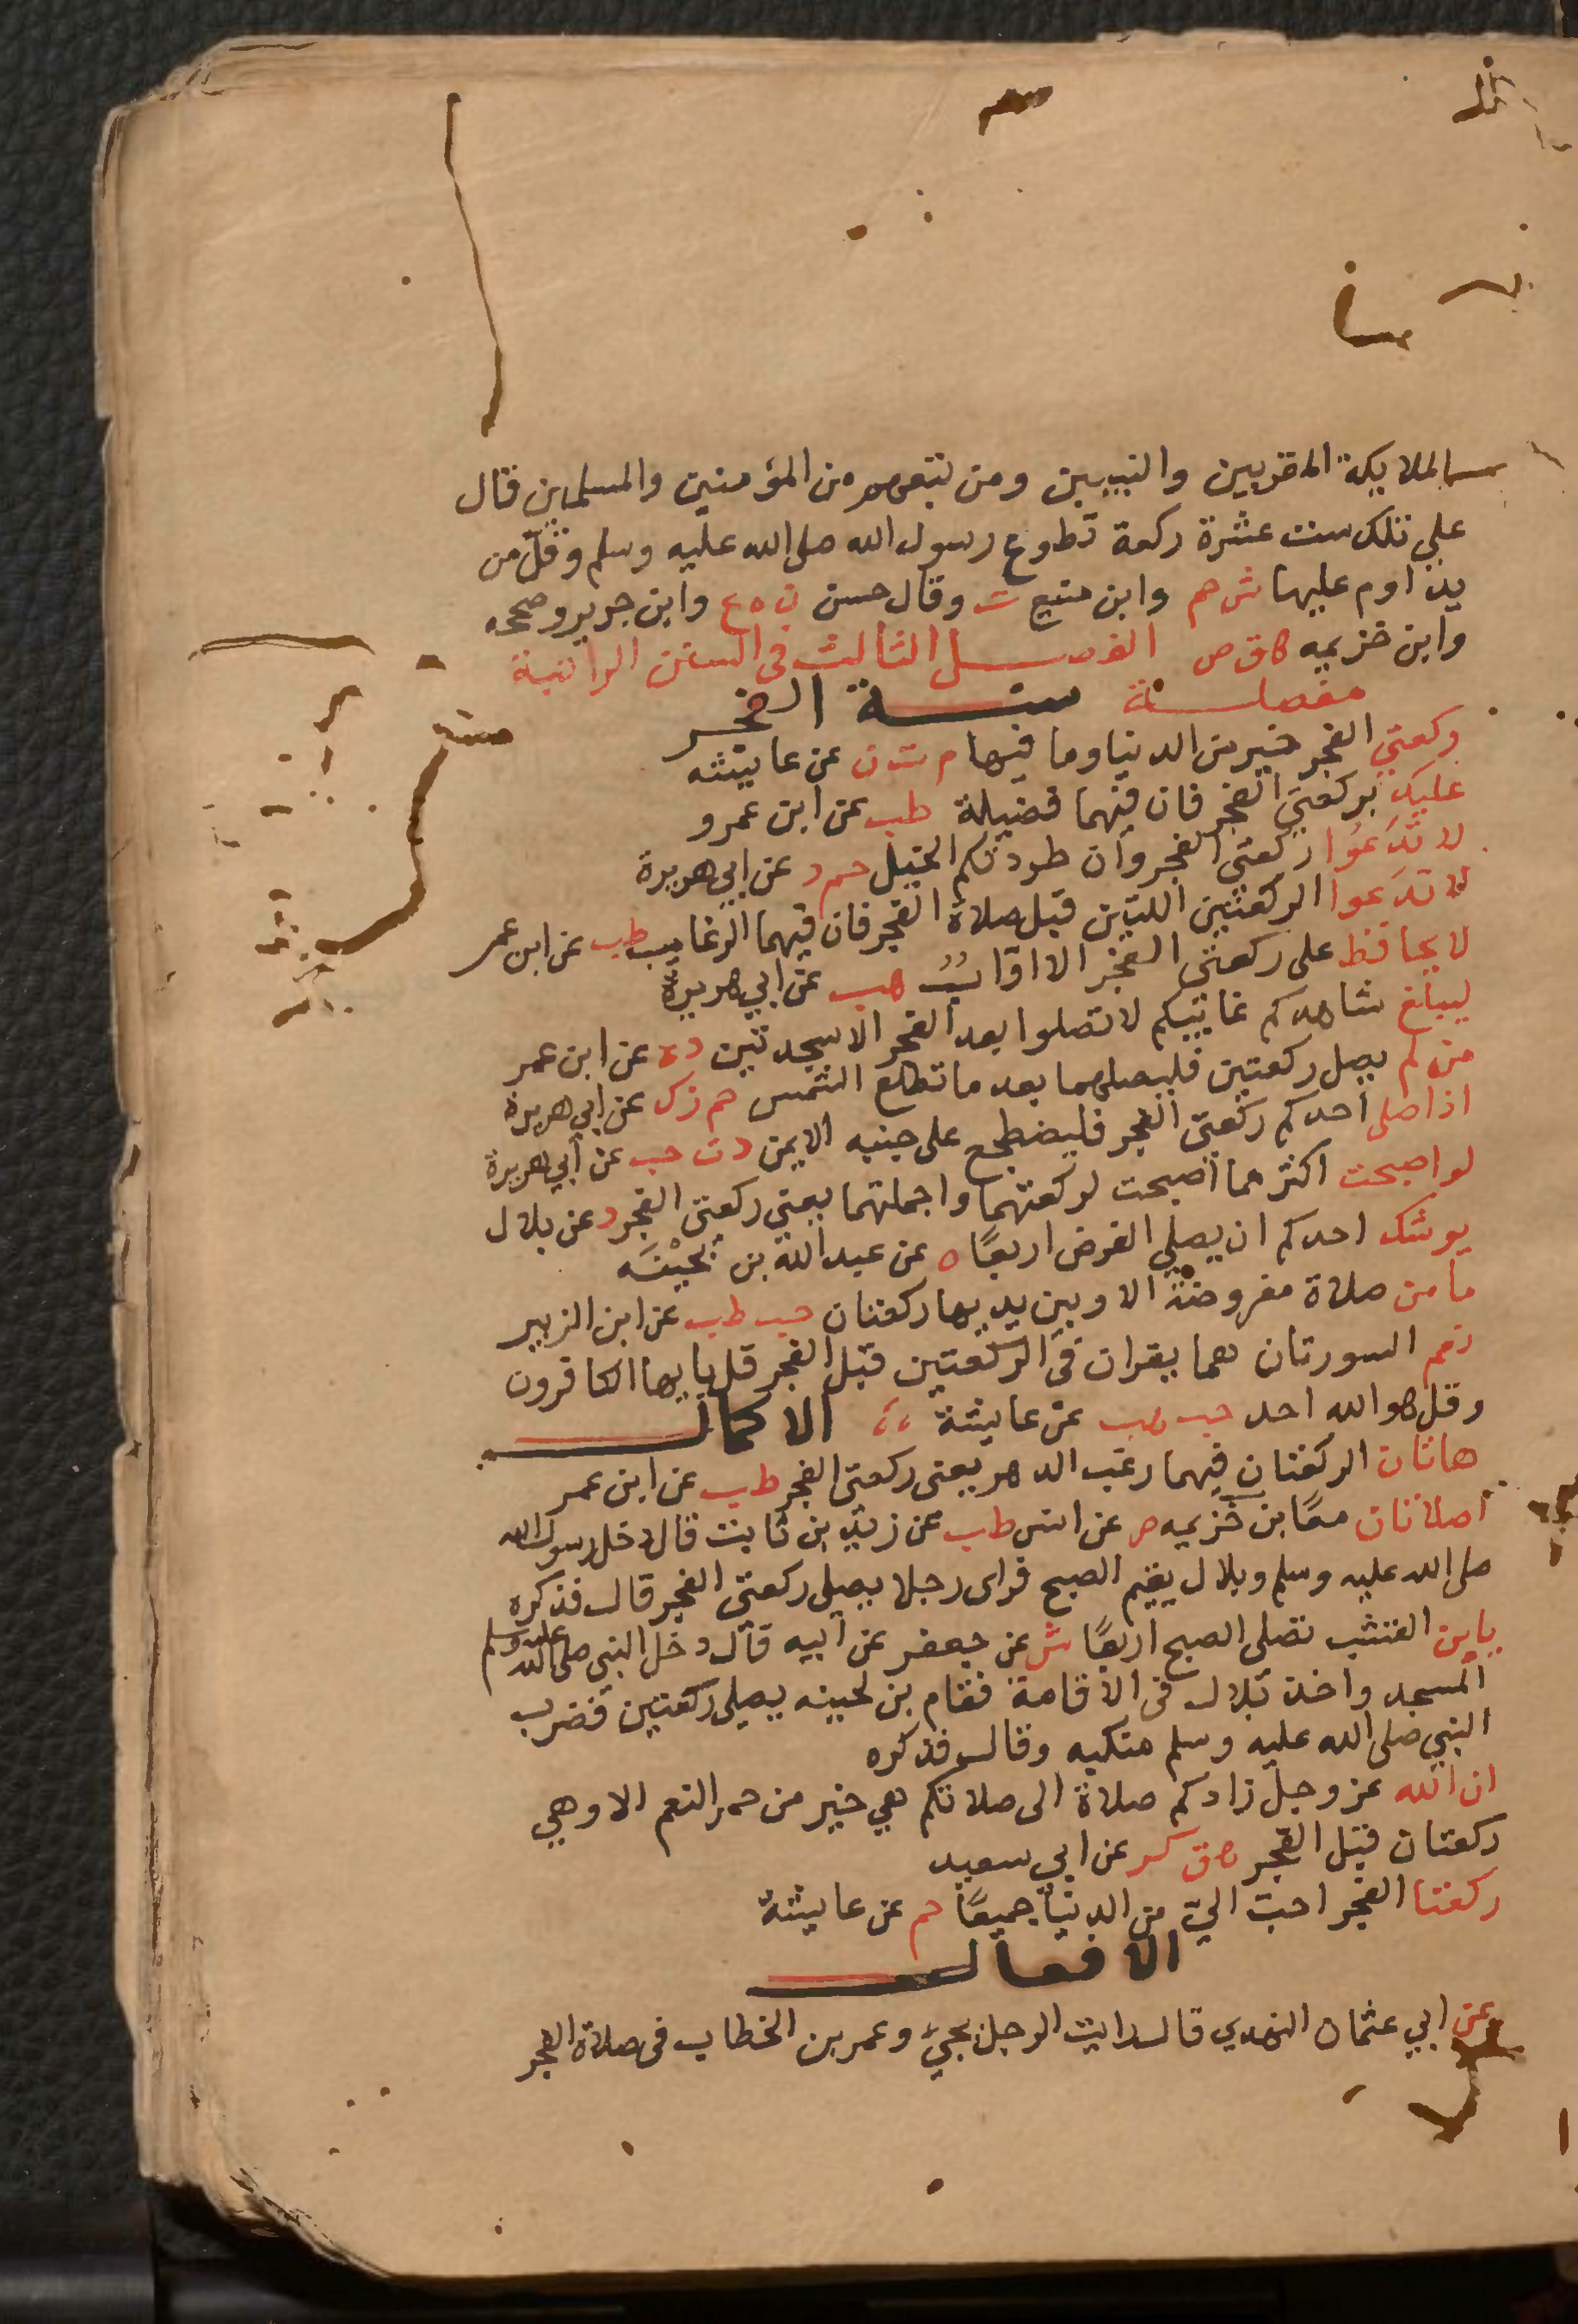 الملايكة المقربين والنبيين ومن تبعهم من المؤمنين والمسلمين قال
علي تلك ست عشرة ركعة تطوع رسول الله صلى الله عليه وسلم وقلّ من
يداوم عليها ش حم وابن منيع ت وقال حسن ن ه ع وابن جرير وصححه
وابن خزيمه ق ص الفصل الثالث فى السنن الراتبة
مفصلة سنة الفجر
ركعتي الفجر خير من الدنيا وما فيها م ت ن عن عايشه
عليك بركعتي الفجر فان فيهما فضيلة طب عن ابن عمرو
لا تدَعُوا ركعتي الفجر وان طردتكم الخيل حم د عن ابي هريرة
لا تدَعوا الركعتين اللتين قبل صلاة الفجر فان فيهما الرغايب طب عن ابن عمر
لا يحافظ على ركعتي الفجر الا اوابٌ هب عن ابي هريرة
ليبلغ شاهدكم غايبكم لا تصلوا بعد الفجر الا سجدتين د ه عن ابن عمر
من لم يصل ركعتين فليصلهما بعد ما تطلع الشمس حم ز ك عن ابي هريرة
اذا صلى احدكم ركعتي الفجر فليضطجع على جنبه الايمن د ت حب عن ابي هريرة
لو اصبحت اكثر مما اصبحت لركعتهما واجملتهما يعني ركعتي الفجر د عن بلال
يوشك احدكم ان يصلي الفرض اربعًا ه عن عبد الله بن بُحَيْنَه
ما من صلاة مفروضة الا وبين يديها ركعتان حب طب عن ابن الزبير
نعم السورتان هما يقران فى الركعتين قبل الفجر قل يا يها الكافرون
وقل هو الله احد حب هب عن عايشة الاكمال
هاتان الركعتان فيهما رغب الدهر يعنى ركعتي الفجر طب عن ابن عمر
اصلاتان معًا بن خزيمه ص عن انس طب عن زيد بن ثابت قال دخل رسول الله
صلى الله عليه وسلم وبلال يقيم الصبح فراى رجلا يصلى ركعتي الفجر قال فذكره
يا بن القشب تصلى الصبح اربعًا ش عن جعفر عن ابيه قال دخل النبي صلى الله عليه وسلم
المسجد واخذ بلال فى الاقامة فقام بن لحينه يصلى ركعتين فضرب
النبي صلى الله عليه وسلم منكبه وقال فذكره
ان الله عز وجل زادكم صلاة الى صلاتكم هي خير من حمر النعم الا وهي
ركعتان قبل الفجر ق كر عن ابي سعيد
ركعتا الفجر احب اليّ من الدنيا جميعًا حم عن عايشة
الافعال
عن ابي عثمان النهدي قال رايت الرجل يجيء وعمر بن الخطاب فى صلاة الفجر